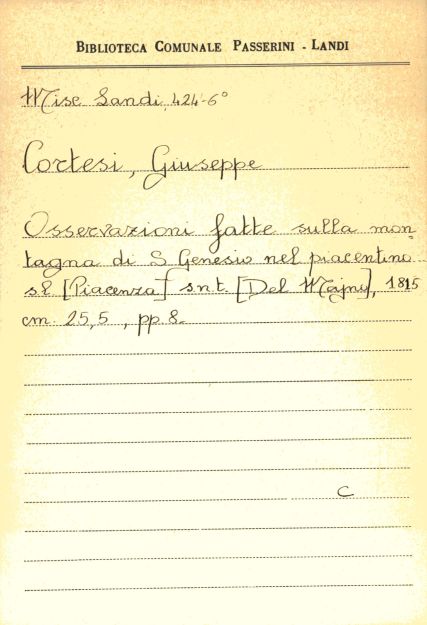 BIBLIOTECA COMUNALE PASSERINI - LANDI
Misc Landi, 424-6°
Cortesi, Giuseppe
Osservazioni fatte sulla mon-
tagna di S Genesio nel piacentino
s.l. [Piacenza] s.n.t. [Del Majno], 1815
cm. 25,5, pp. 8.
C